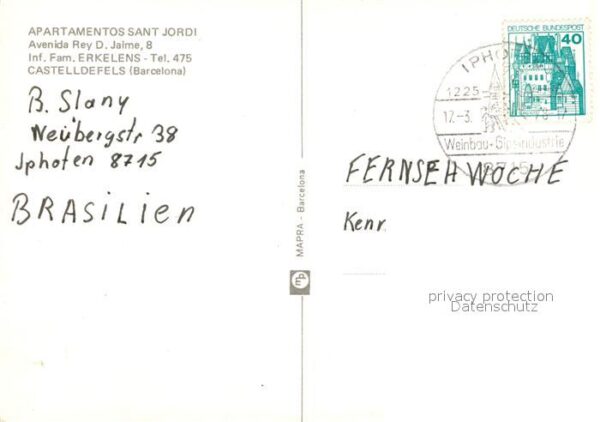 APARTAMENTOS SANT JORDI
Avenida Rey D. Jaime, 8
Inf. Fam. ERKELENS - Tel. 475
CASTELLDEFELS (Barcelona)
B. Slany
Neübergstr 38
Jphofen 8715
BRASILIEN
MAPRA - Barcelona
mp
DEUTSCHE BUNDESPOST
40
IPHO
1225-
17.-3.
Weinbau + Gipsindustrie
8715
FERNSEHWOCHE
Kenr.
privacy protection
Datenschutz